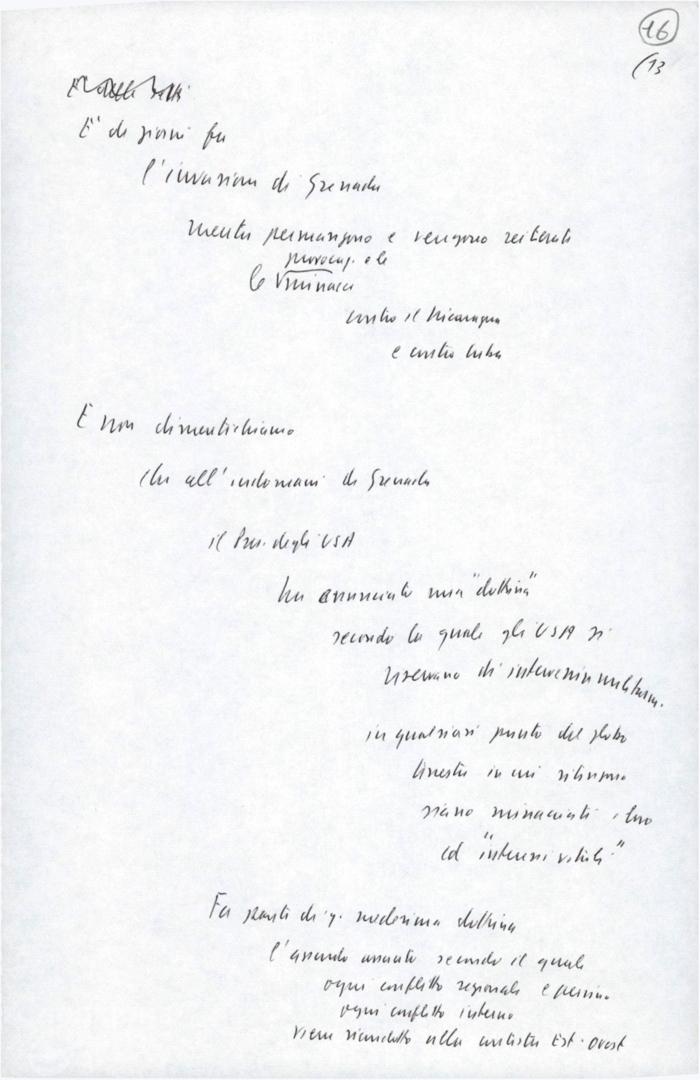 16
(13
E' di giorni fa
l'invasione di Grenada
mentre permangono e vengono reiterate
provocaz. e le
le minacce
contro il Nicaragua
e contro Cuba
E non dimentichiamo
che all'indomani di Grenada
il Pres. degli USA
ha annunciato una "dottrina"
secondo la quale gli USA si
riservano di intervenire militarm.
in qualsiasi punto del globo
in cui ritengono
siano minacciati i loro
cd "interessi vitali"
Fa parte di q. medesima dottrina
l'assurdo assunto secondo il quale
ogni conflitto regionale e persino
ogni conflitto interno
viene ricondotto alla contesa Est-Ovest